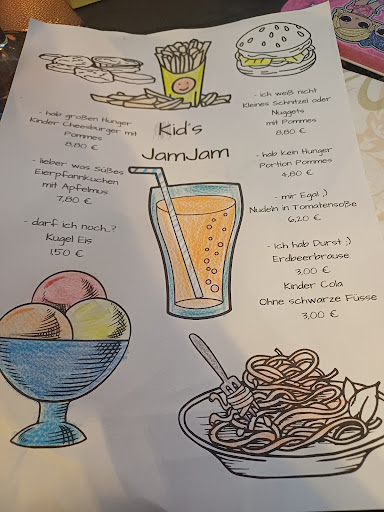 Kid's
JamJam
- hab großen Hunger
Kinder Cheesburger mit
Pommes
8,80 €
- lieber was Süßes
Eierpfannkuchen
mit Apfelmus
7,80 €
- darf ich noch..?
Kugel Eis
1,50 €
- ich weiß nicht
Kleines Schnitzel oder
Nuggets
mit Pommes
8,80 €
- hab kein Hunger
Portion Pommes
4,80 €
- mir Egal ;)
Nudeln in Tomatensoße
6,20 €
- ich hab Durst ;)
Erdbeerbrause
3,00 €
Kinder Cola
Ohne schwarze Füsse
3,00 €